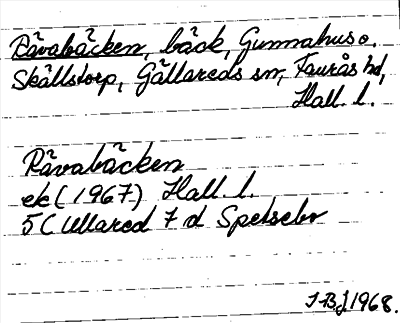 Rävabäcken, bäck, Gunnahus o.
Skällstorp, Gällareds sn, Faurås hd,
Hall. l.
Rävabäcken
ek (1967) Hall. l.
5C Ullared 7 d Spetsebo
J-BJ 1968.